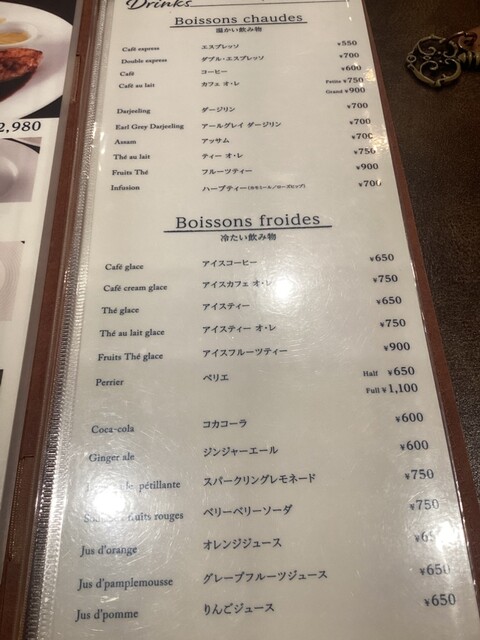 Drinks
Boissons chaudes
温かい飲み物
Café express エスプレッソ ¥550
Double express ダブル・エスプレッソ ¥700
Café コーヒー ¥600
Café au lait カフェ オ・レ Petite ¥750
Grand ¥900
Darjeeling ダージリン ¥700
Earl Grey Darjeeling アールグレイ ダージリン ¥700
Assam アッサム ¥700
Thé au lait ティー オ・レ ¥750
Fruits Thé フルーツティー ¥900
Infusion ハーブティー(カモミール/ローズヒップ) ¥700
Boissons froides
冷たい飲み物
Café glace アイスコーヒー ¥650
Café cream glace アイスカフェ オ・レ ¥750
Thé glace アイスティー ¥650
Thé au lait glace アイスティー オ・レ ¥750
Fruits Thé glace アイスフルーツティー ¥900
Perrier ペリエ Half ¥650
Full ¥1,100
Coca-cola コカコーラ ¥600
Ginger ale ジンジャーエール ¥600
pétillante スパークリングレモネード ¥750
rouges ベリーベリーソーダ ¥750
Jus d'orange オレンジジュース
Jus d'pamplemousse グレープフルーツジュース ¥650
Jus d'pomme りんごジュース ¥650
2,980